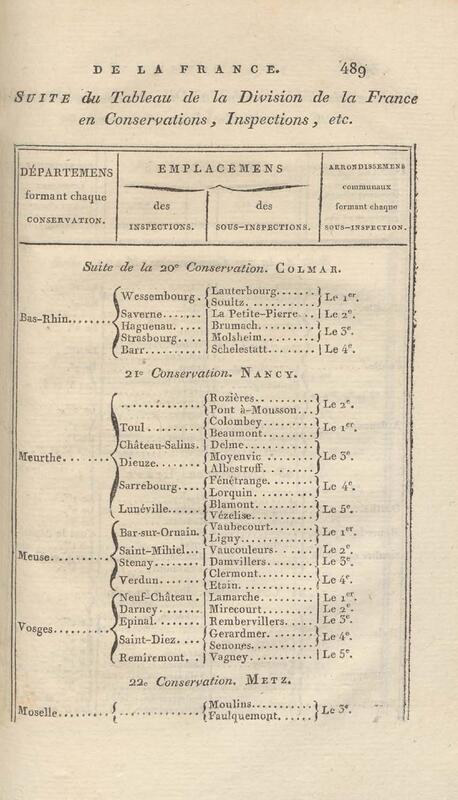 DE LA FRANCE. 489
SUITE du Tableau de la Division de la France
en Conservations, Inspections, etc.
DÉPARTEMENS
formant chaque
CONSERVATION.
EMPLACEMENS
des
INSPECTIONS.
des
SOUS-INSPECTIONS.
ARRONDISSEMENS
communaux
formant chaque
SOUS-INSPECTION.
Suite de la 20e Conservation. COLMAR.
Bas-Rhin........
Wessembourg. Lauterbourg....... Le 1er.
Soultz............
Saverne...... La Petite-Pierre... Le 2e.
Haguenau.... Brumach......... Le 3e.
Strasbourg.... Molsheim........
Barr.......... Schelestatt........ Le 4e.
21e Conservation. NANCY.
Meurthe.........
.............. Rozières.......... Le 2e.
Pont à-Mousson...
Toul......... Colombey........ Le 1er.
Beaumont........
Château-Salins. Delme........... Le 3e.
Dieuze....... Moyenvic ........
Albestroff.........
Sarrebourg.... Fénétrange....... Le 4e.
Lorquin..........
Lunéville..... Blamont.......... Le 5e.
Vézelise..........
Meuse...........
Bar-sur-Ornain. Vaubecourt....... Le 1er.
Ligny............
Saint-Mihiel... Vaucouleurs...... Le 2e.
Stenay....... Damvillers....... Le 3e.
Verdun....... Clermont........ Le 4e.
Etain............
Vosges..........
Neuf-Château. Lamarche........ Le 1er.
Darney....... Mirecourt........ Le 2e.
Epinal........ Rembervillers..... Le 3e.
Saint-Diez.... Gerardmer....... Le 4e.
Senones..........
Remiremont. . Vagney.......... Le 5e.
22e Conservation. METZ.
Moselle.........
.............. Moulins.......... Le 3e.
Faulquemont......